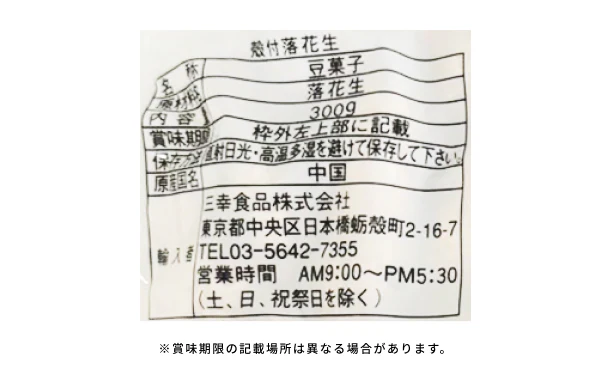 殻付落花生
名称 豆菓子
原材料 落花生
内容量 300g
賞味期限 枠外左上部に記載
保存方法 直射日光・高温多湿を避けて保存して下さい。
原産国名 中国
輸入者 三幸食品株式会社
東京都中央区日本橋蛎殻町2-16-7
TEL03-5642-7355
営業時間 AM9:00～PM5:30
(土、日、祝祭日を除く)
※賞味期限の記載場所は異なる場合があります。